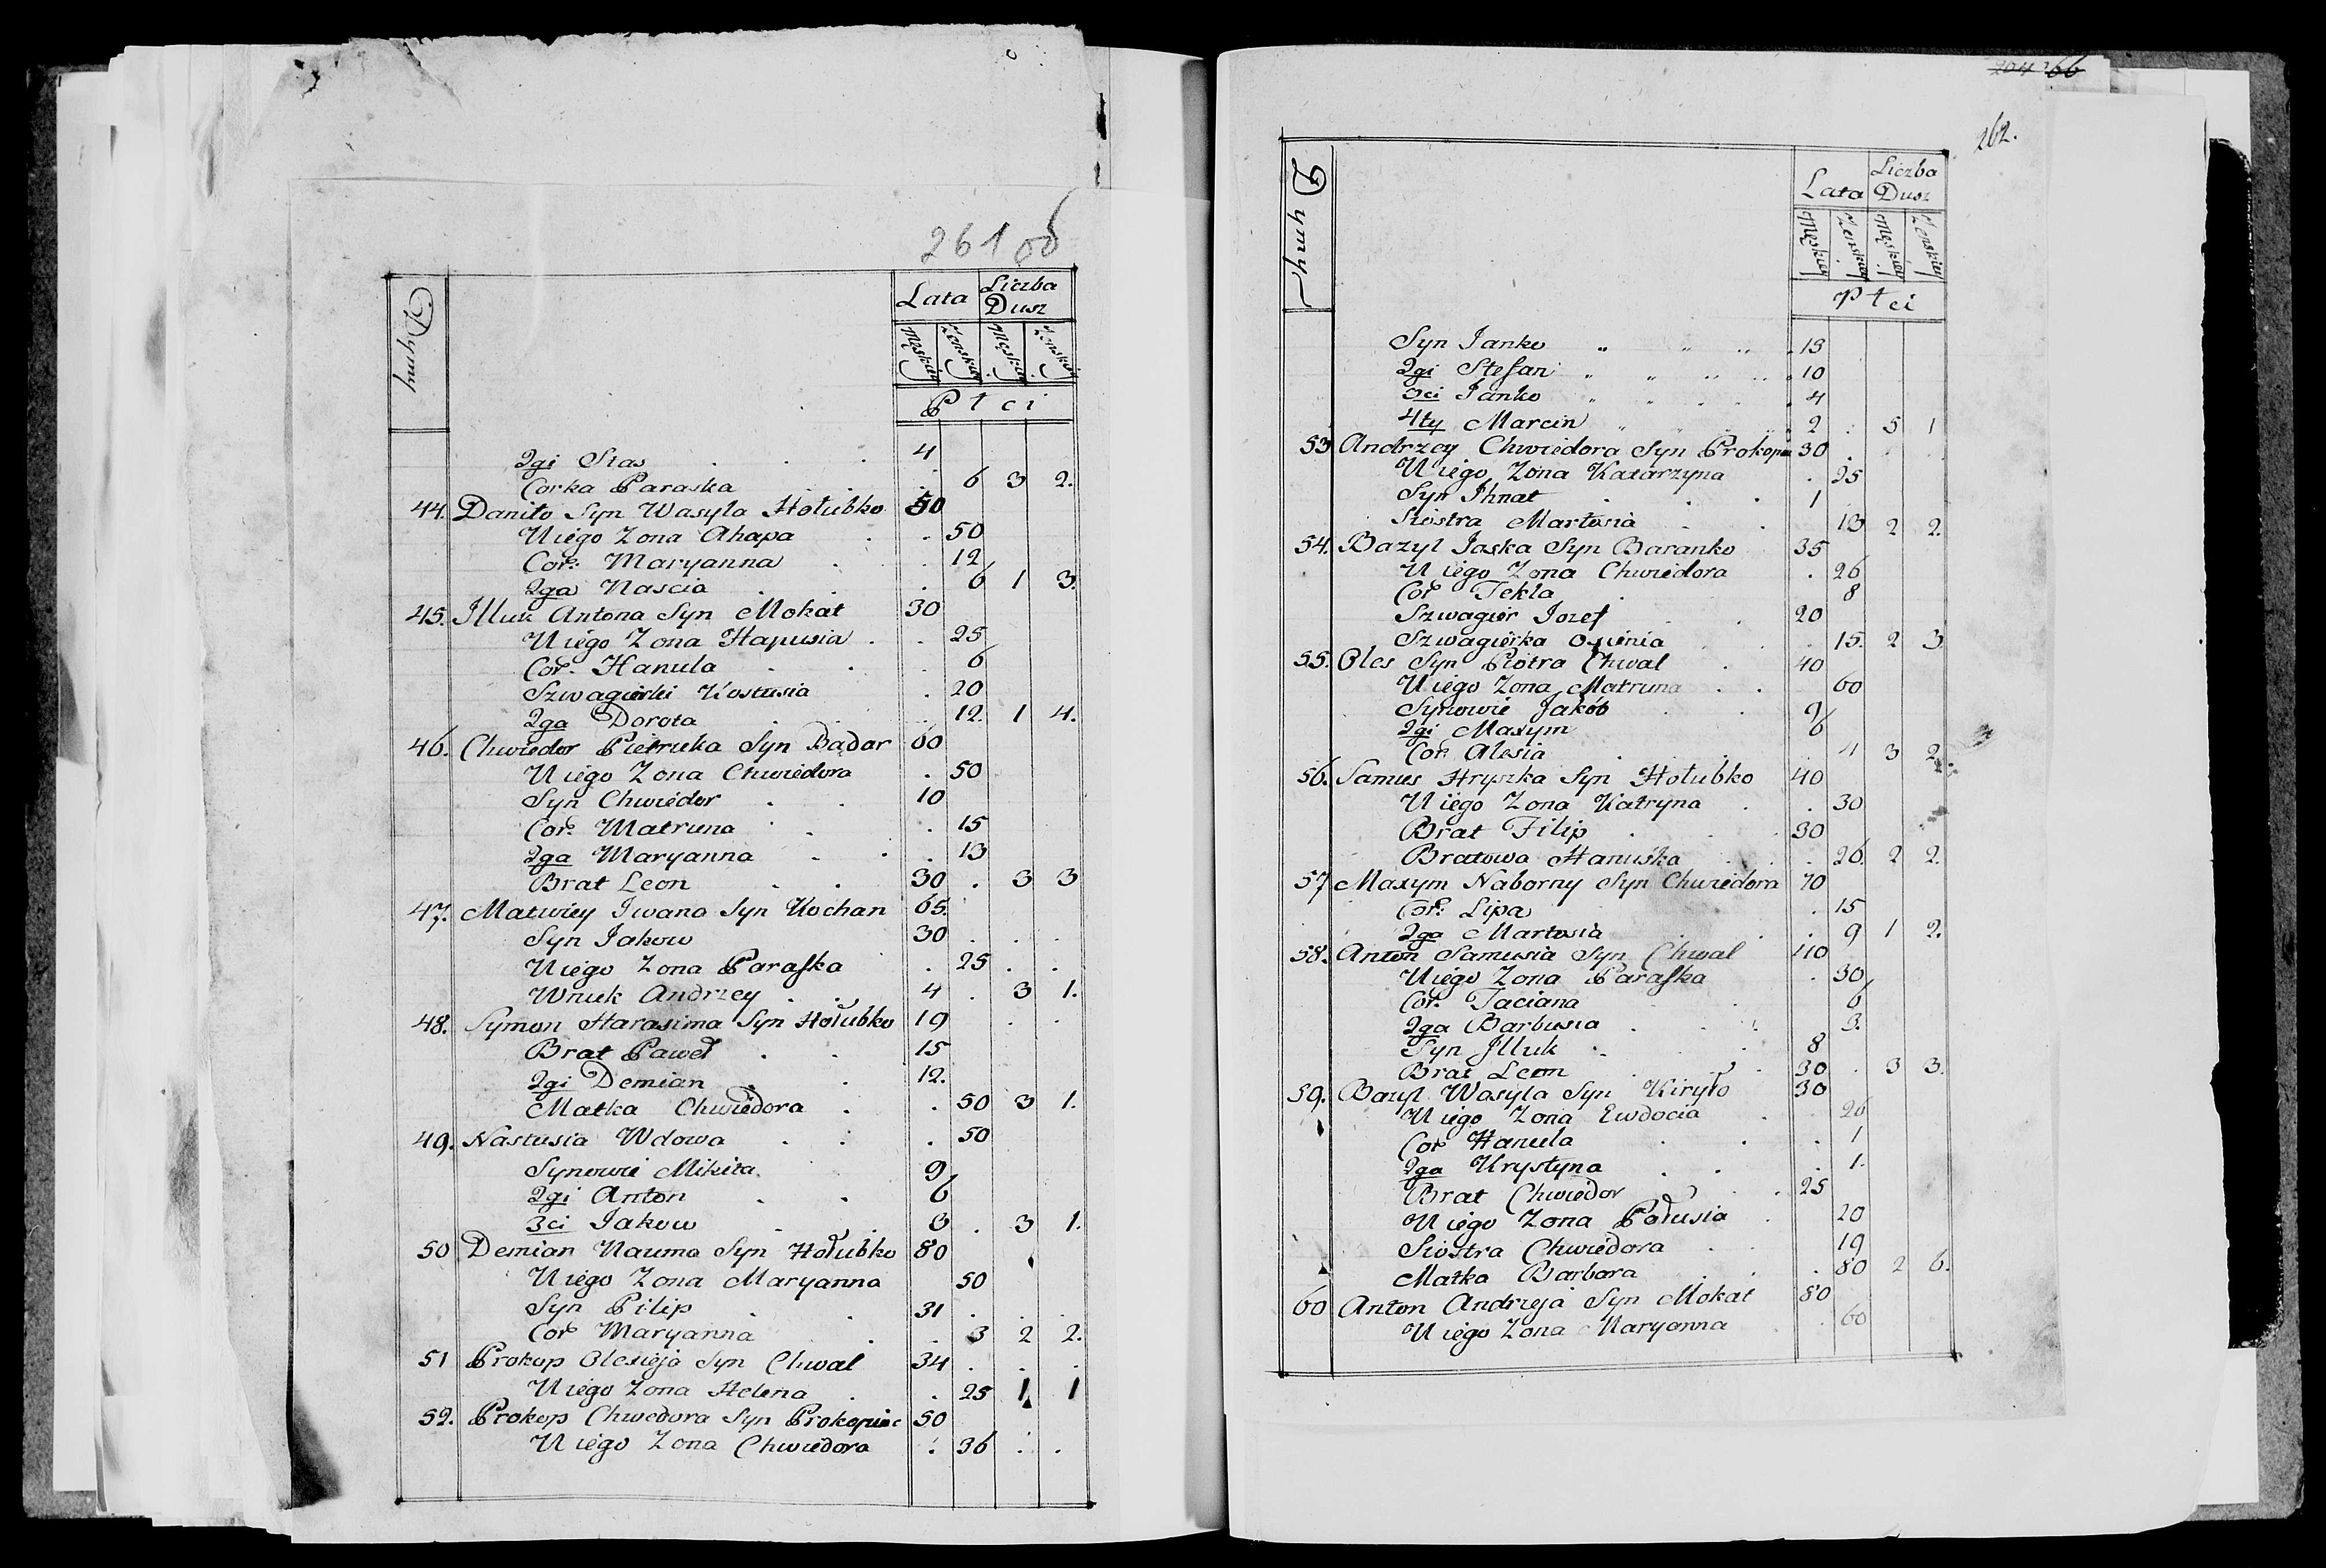 261 об
Dymy
Lata Liczba Dusz
Męskiey Żenskiey Męskiey Żenskiey
Płci
2gi Stas . . . 4
Corka Paraska . . . 6 3 2.
44. Daniło Syn Wasyla Hołubko 50
U iego Zona Ahapa . . 50
Cor: Maryanna . . 12
2ga Nascia . . . 6 1 3.
45. Illuk Antona Syn Mokat 30
U iego Zona Hapusia . . 25
Cor. Hanula . . . 6
Szwagierki Kostusia . 20
2ga Dorota . . . 12. 1 4.
46. Chwiedor Pietruka Syn Bądar 60
U iego Zona Chwiedora . 50
Syn Chwiedor . . 10
Cor. Matruna . . . 15
2ga Maryanna . . . 13
Brat Leon . . 30 . 3 3
47. Matwiey Iwana Syn Kochan 65.
Syn Jakow 30 . . .
U iego Zona Paraska . 25 . .
Wnuk Andrzey . . 4 . 3 1.
48. Symon Harasima Syn Hołubko 19 . .
Brat Paweł . . 15
2gi Demian . . 12.
Matka Chwiedora . . 50 3 1.
49. Nastusia Wdowa . . . 50
Synowie Mikita 9
2gi Anton . . 6
3ci Jakow . . 3 . 3 1.
50 Demian Nauma Syn Hołubko 80
U iego Zona Maryanna 50
Syn Pilip . . 31 . . .
Cor Maryanna . . 3 2 2.
51 Prokop Olesieja Syn Chwal 34 . . .
U iego Zona Helena . . 25 1 1
52. Prokop Chwedora Syn Prokopiec 50
U iego Zona Chwiedora . 36 . .
66
262.
Dymy
Lata Liczba Dusz
Męskiey Żenskiey Męskiey Żenskiey
Płci
Syn Janko „ „ „ . 13
2gi Stefan „ „ „ „ . 10
3ci Janko „ „ . . . 4
4ty Marcin „ „ „ . 2 . 5 1
53 Andrzey Chwiedora Syn Prokopia 30 . . .
U iego Zona Katarzyna . 25
Syn Ihnat . . . 1
Siostra Martosia . . 13 2 2.
54. Bazyl Jaska Syn Baranko 35
U iego Zona Chwiedora . 26
Cor Tekla . 8
Szwagier Jozef . . 20
Szwagierka . 15. 2 3
55. Oles Syn Piotra Chwal . 40
U iego Zona Matruna . . 60
Synowie Jakób . . 9
2gi Maxym 6
Cor. Alesia . . . 4 3 2.
56. Samus Hryszka Syn Hołubko 40
U iego Zona Katryna . . 30
Brat Filip . . . 30
Bratowa Hanuska . . . 26. 2 2.
57 Maxym Naborny Syn Chwiedora 70
Cor. Lipa . 15
2ga Martosia . . . 9 1 2.
58. Anton Samusia Syn Chwal 40
U iego Zona Paraska . 30
Cor. Taciana . 6
2ga Barbusia . . . 3.
Syn Illuk . . . 8
Brat Leon . . . 30 . 3 3.
59. Bazyl Wasyla Syn Kiryło 30
U iego Zona Ewdocia . . 26
Cor Hanula . . . 1
2ga Krystyna . . . 1.
Brat Chwiedor . . 25
U iego Zona Połusia . 20
Siostra Chwiedora . . 19
Matka Barbara . . . 80 2 6.
60 Anton Andrzeja Syn Mokat 80
U iego Zona Maryanna . 60